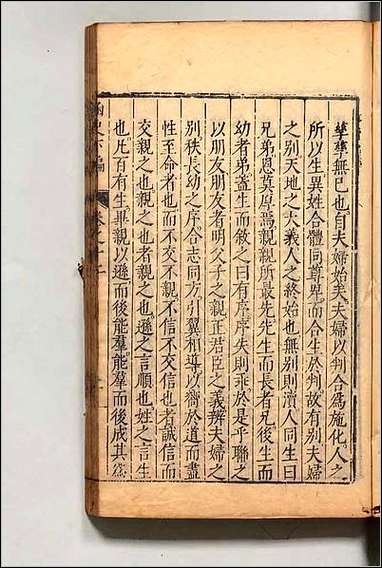 孳孳無已也自夫婦始矣夫婦以判合爲施化人之
所以生異姓合體同尊卑而合生於判故有别夫婦
之别天地之大義人之終始也無别則瀆人同生曰
兄弟恩莫厚焉親親所最先先生而長者兄後生而
幼者弟並生而敘之曰有序序失則乖於是乎聯之
以朋友朋友者明父子之親正君臣之義辨夫婦之
别秩長幼之序合志同方引翼相導以嚮於道而盡
性至命者也而不交不親不信不交信也者誠信而
交親之也親之也者親之也遜之言順也姓之言生
也凡百有生畢親以遜而後能羣能羣而後成其爲
函史下編 卷之十二